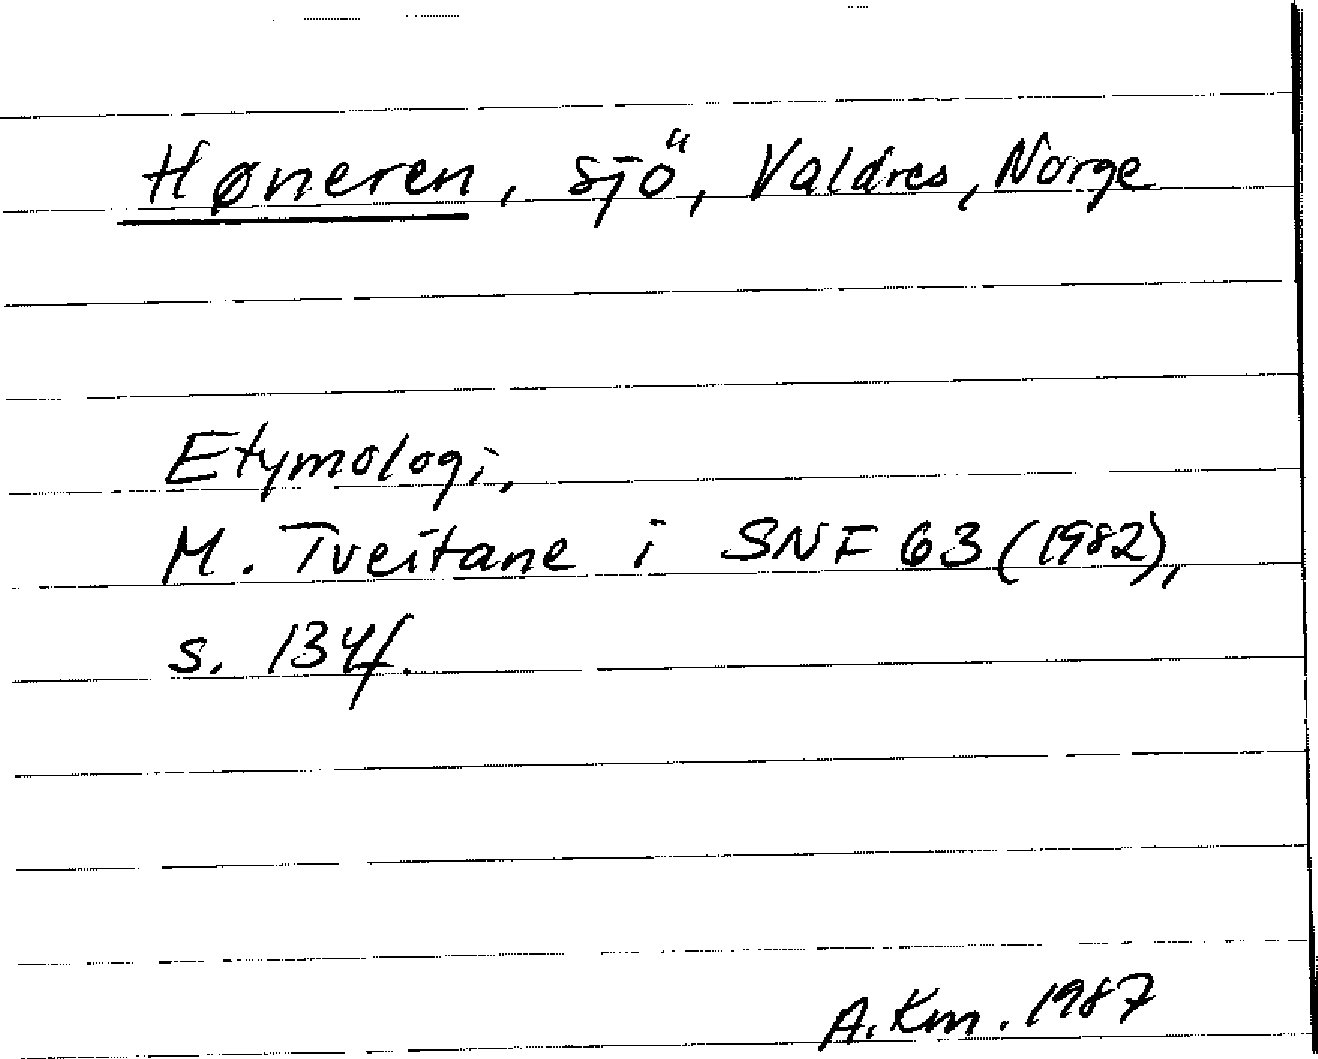 Høneren, sjö, Valdres, Norge
Etymologi,
M. Tveitane i SNF 63 (1982),
s. 134f.
A. Km. 1987